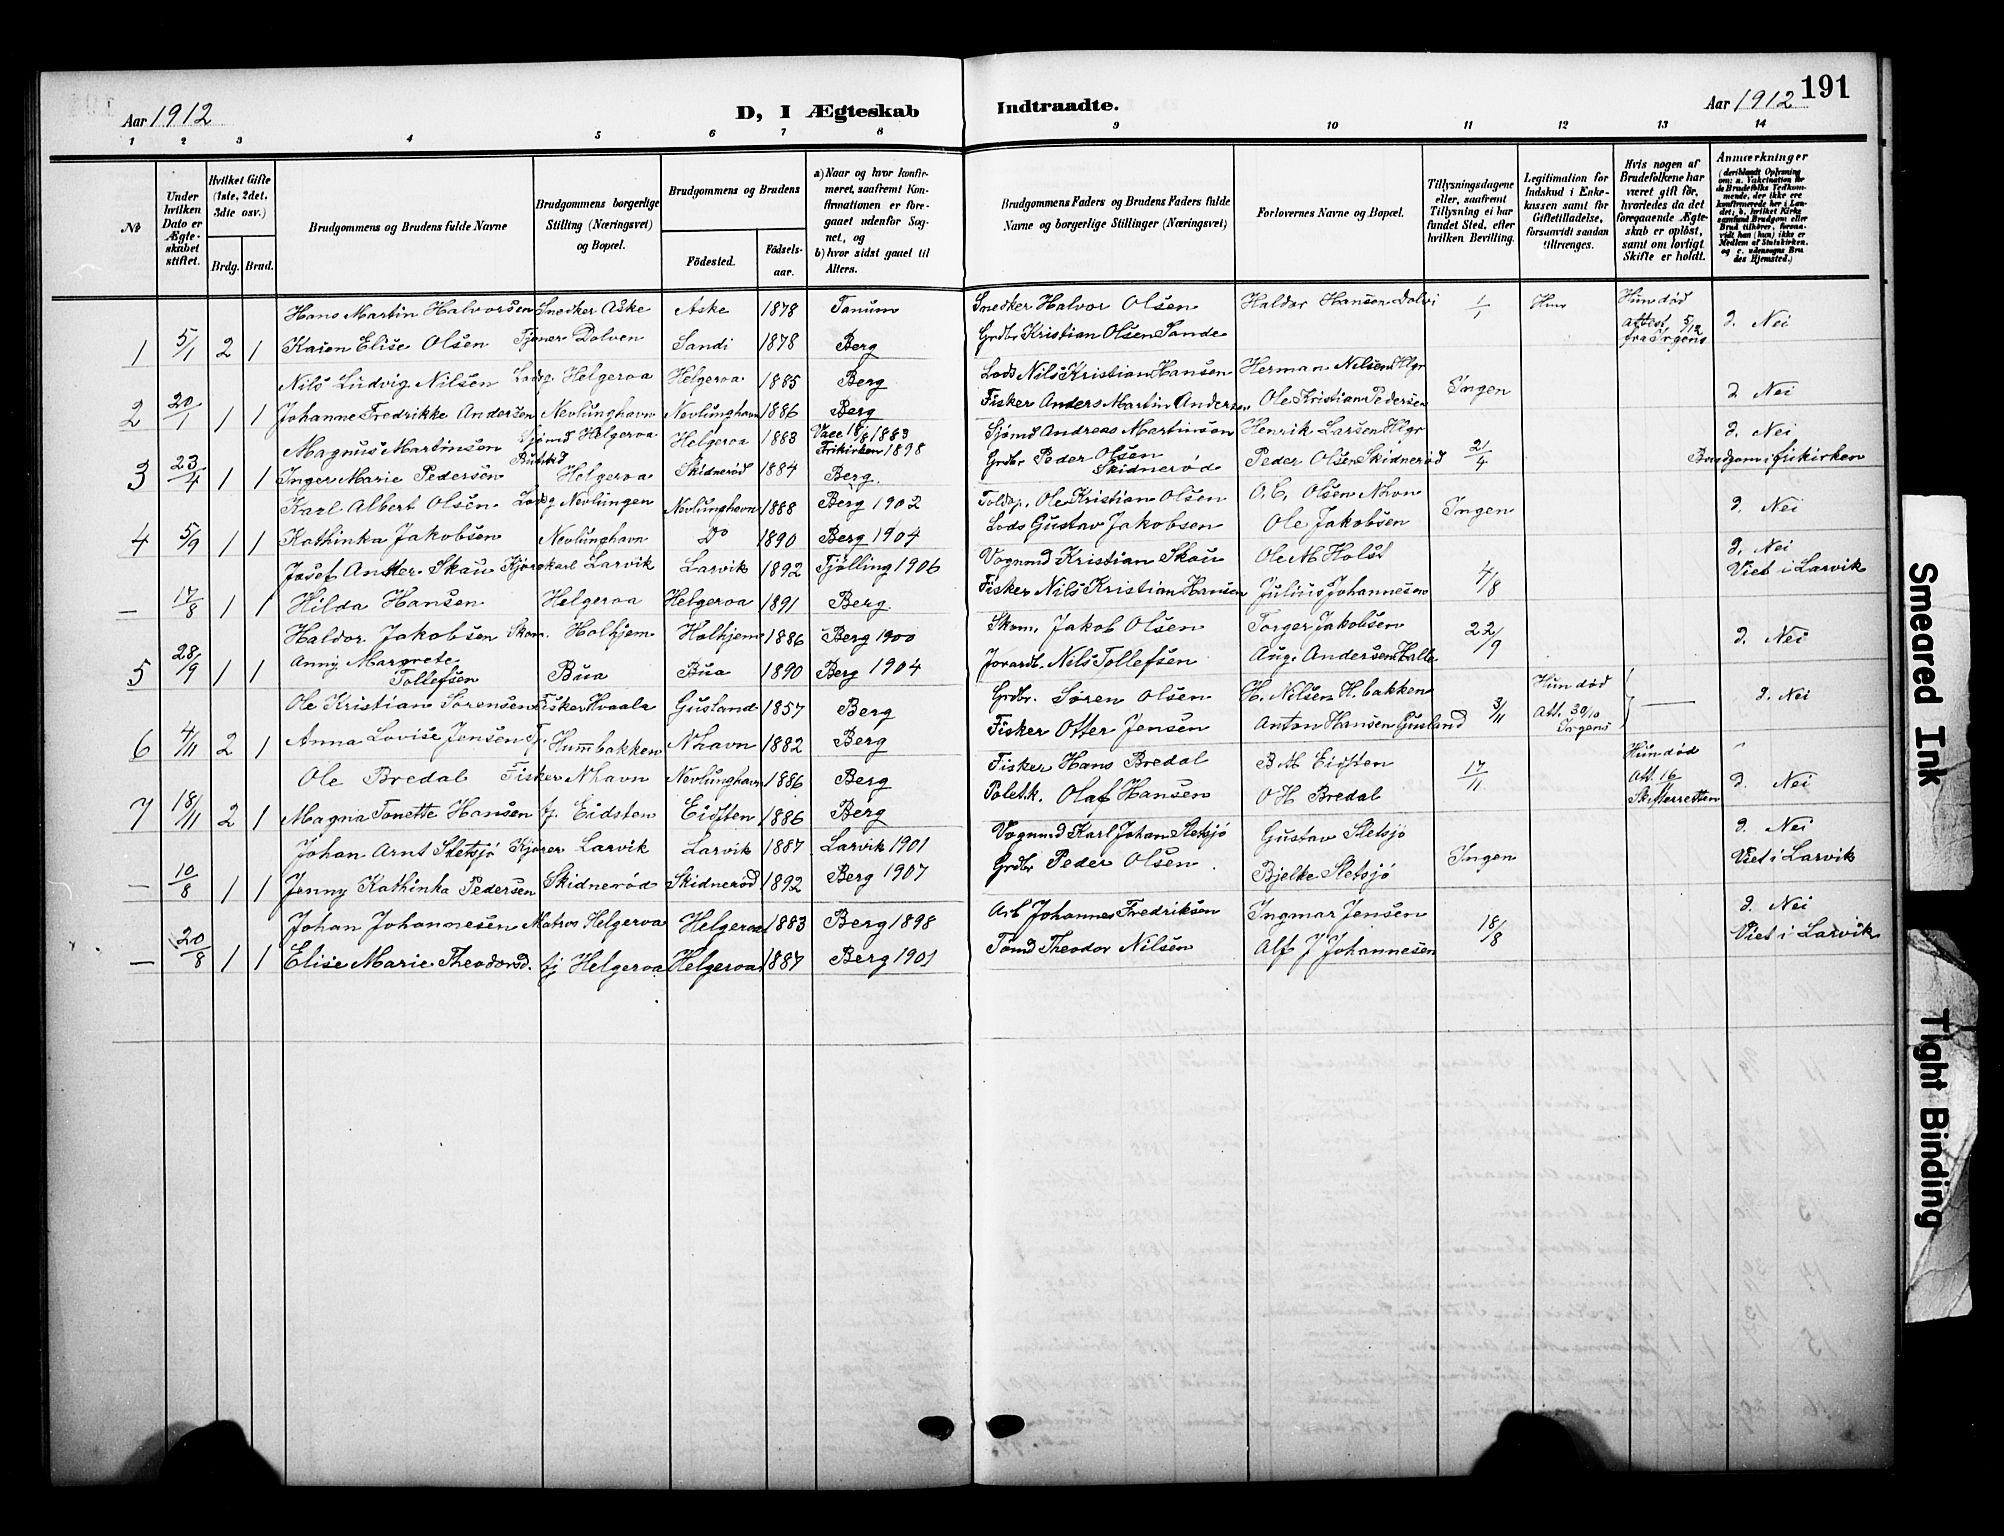 Aar 1912
D, I Ægteskab
Indtraadte.
Aar 1912
191
1 2 3 4 5 6 7 8 9 10 11 12 13 14
No
Under hvilken Dato er Ægteskabet stiftet.
Hvilket Gifte (1ste, 2det, 3die osv.)
Brdg. Brud.
Brudgommens og Brudens fulde Navne
Brudgommens borgerlige Stilling (Næringsvei) og Bopæl.
Brudgommens og Brudens
Fødested.
Fødselsaar.
a) Naar og hvor konfirmeret, saafremt Konfirmationen er foregaaet udenfor Sognet, og
b) hvor sidst gaaet til Alters.
Brudgommens Faders og Brudens Faders fulde Navne og borgerlige Stillinger (Næringsvei)
Forlovernes Navne og Bopæl.
Tillysningsdagene eller, saafremt Tillysning ei har fundet Sted, efter hvilken Bevilling.
Legitimation for Indskud i Enkekassen samt for Giftetilladelse, forsaavidt saadan tiltrænges.
Hvis nogen af Brudefolkene har været gift før, hvorledes da det foregaaende Ægteskab er opløst, samt om lovligt Skifte er holdt.
Anmærkninger
Hans Martin Halvorsen Snedker Aske Aske 1878 Tanum Snedker Halvor Olsen Haldor Hansen Dolvi 1/1 Hun død
1 5/1 2 1 Karen Elise Olsen Tjener Dolven Sandi 1878 Berg Grdbr Kristian Olsen Sande Attest 5/12 fra Irgens d. Nei
Nils Ludvig Nilsen Lodsg. Helgeroa Helgeroa 1885 Berg Lods Nils Kristian Hansen Herman Nilsen Hlgr
2 20/1 1 1 Johanne Fredrikke Andersen Nevlunghavn Nevlunghavn 1886 Berg Fisker Anders Martin Andersen Ole Kristian Pedersen Ingen d Nei
Magnus Martinsen Sjømd Helgeroa Helgeroa 1883 Vacc 18/8 1883 Frikirken 1898 Sjømd Andreas Martinsen Henrik Larsen Hlgr d. Nei
3 23/4 1 1 Inger Marie Pedersen Helgeroa Skidnerød 1884 Berg. Grdbr Peder Olsen Skidnerød Peder Olsen Skidnerød 2/4 Brudgom i frikirken
Karl Albert Olsen Lodsg Nevlungen Nevlunghavn 1888 Berg 1902 Toldop. Ole Kristian Olsen O. C. Olsen Nhvn Ingen d. Nei
4 5/9 1 1 Kathinka Jakobsen Nevlunghavn Do 1890 Berg 1904 Lods Gustav Jakobsen Ole Jakobsen
Josef Skau Larvik Larvik 1892 Tjølling 1906 Vognmd Kristian Skau Ole M Holst d. Nei
— 17/8 1 1 Hilda Hansen Helgeroa Helgeroa 1891 Berg. Fisker Nils Kristian Hansen Julius Johannesen 4/8 Viet i Larvik
Haldor Jakobsen Skom. Holhjem Holhjem 1886 Berg 1900 Skom. Jakob Olsen Torger Jakobsen 22/9 d. Nei
5 28/9 1 1 Anny Margrete Tollefsen Bua Bua 1890 Berg 1904 Nils Tollefsen Aug. Andersen Halle
Ole Kristian Sørensen Fisker Hvaale Gusland 1857 Berg Grdbr. Søren Olsen H. Nilsen H.bakken Hun død
6 4/11 2 1 Anna Lovise Jensen Tj. Humbakken Nhavn 1882 Berg Fisker Otter Jensen Anton Hansen Gusland 3/11 Att. 30/10 Irgens — d. Nei
Ole Bredal Fisker Nhavn Nevlunghavn 1886 Berg Fisker Hans Bredal B M Eidsten 17/11 Hun død
7 18/11 2 1 Magna Tonette Hansen tj. Eidsten Eidsten 1886 Berg Olaf Hansen O H Bredal Att. 16 Skifteretten d. Nei
Johan Arnt Sletsjø Kjører Larvik Larvik 1887 Larvik 1901 Vognmd Karl Johan Sletsjø Gustav Sletsjø d. Nei
— 10/8 1 1 Jenny Kathinka Pedersen Skidnerød Skidnerød 1892 Berg 1907 Grdbr Peder Olsen Bjelke Sletsjø Ingen Viet i Larvik
Johan Johannesen Matros Helgeroa Helgeroa 1883 Berg 1898 Arb Johannes Fredriksen Ingmar Jensen d. Nei
— 20/8 1 1 Elise Marie Theodorsd. tj Helgeroa Helgeroa 1887 Berg 1901 Tømd Theodor Nilsen Alf J Johannesen 18/8 Viet i Larvik
Smeared Ink
Tight Binding